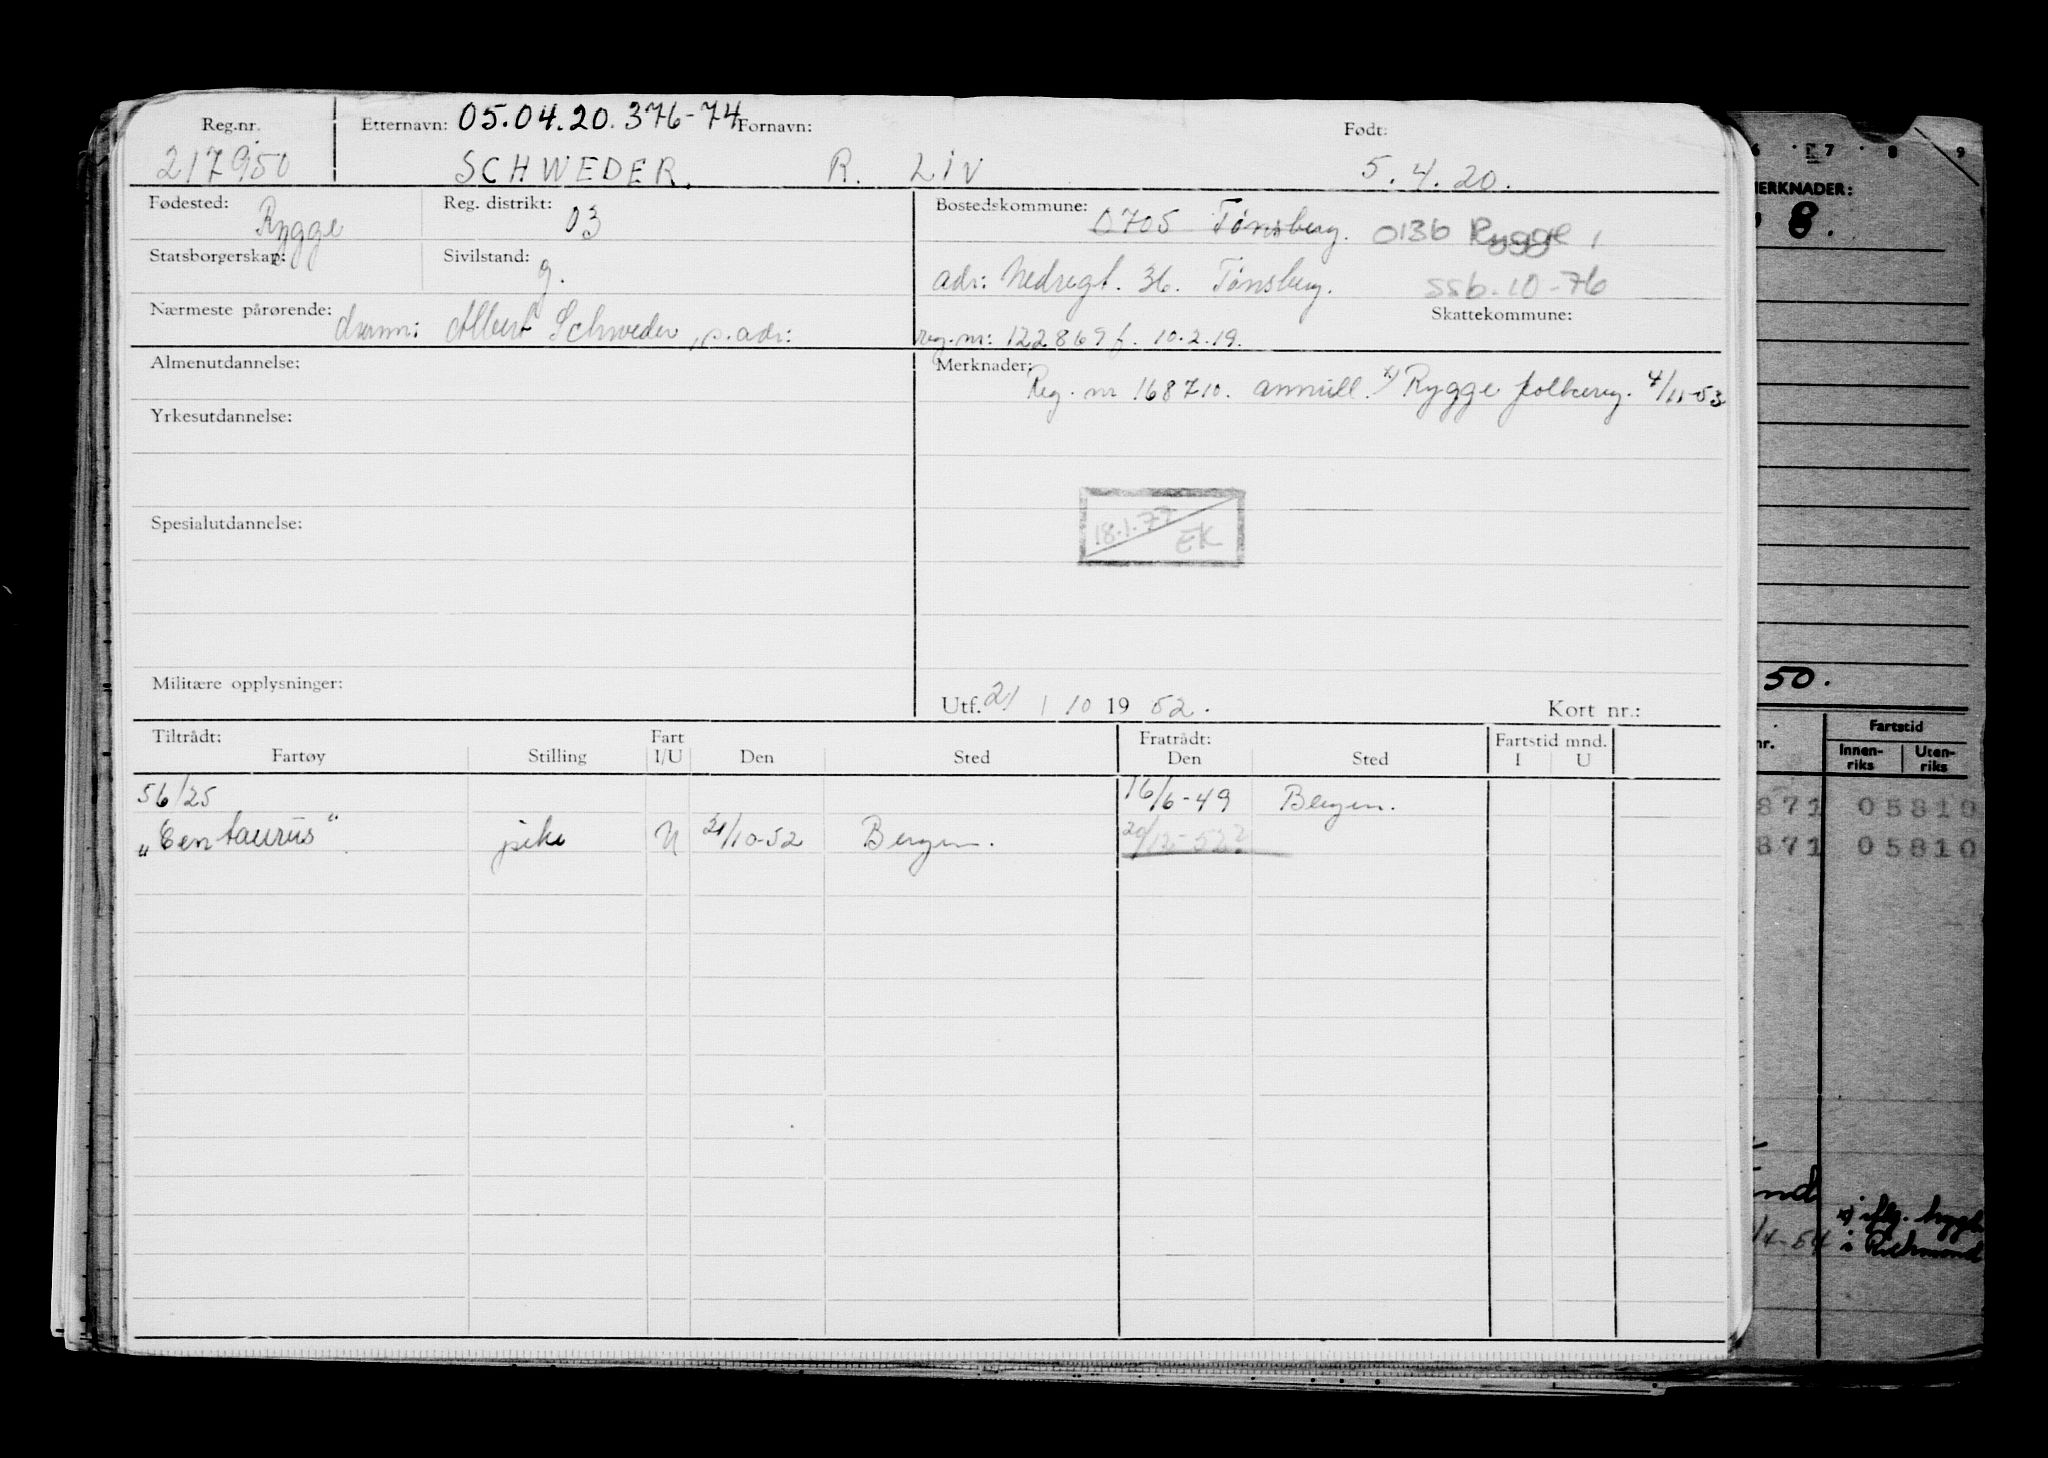 Reg.nr. Etternavn: 05.04.20.376-74 Fornavn: Født:
217950 SCHWEDER. R. LIV 5.4.20.
Fødested: Rygge Reg. distrikt: 03 Bostedskommune: 0705 Tønsberg. 0136 Rygge,
Statsborgerskap: Sivilstand: g. adr: Nedregt. 36. Tønsberg. ssb. 10-76
Skattekommune:
Nærmeste pårørende: Albert Schweder, s. adr: reg. nr: 122869 f. 10.2.19.
Almenutdannelse: Merknader: Reg. nr 168710. annull. x) Rygge folkereg. 4/11-53
Yrkesutdannelse:
18.1.77 EK
Spesialutdannelse:
Militære opplysninger: Utf. 21 / 10 19 52. Kort nr.:
Tiltrådt: Fart Fratrådt: Fartstid mnd.
Fartøy Stilling I/U Den Sted Den Sted I U
56/25 16/6-49 Bergen.
"Centaurus" pike U 21/10-52 Bergen. 20/12-52?
6 7 8 9
MERKNADER:
8.
50.
nr. Fartstid
Innen-riks Uten-riks
871 05810
871 05810
x) iflg.
/4-54 i Richmond